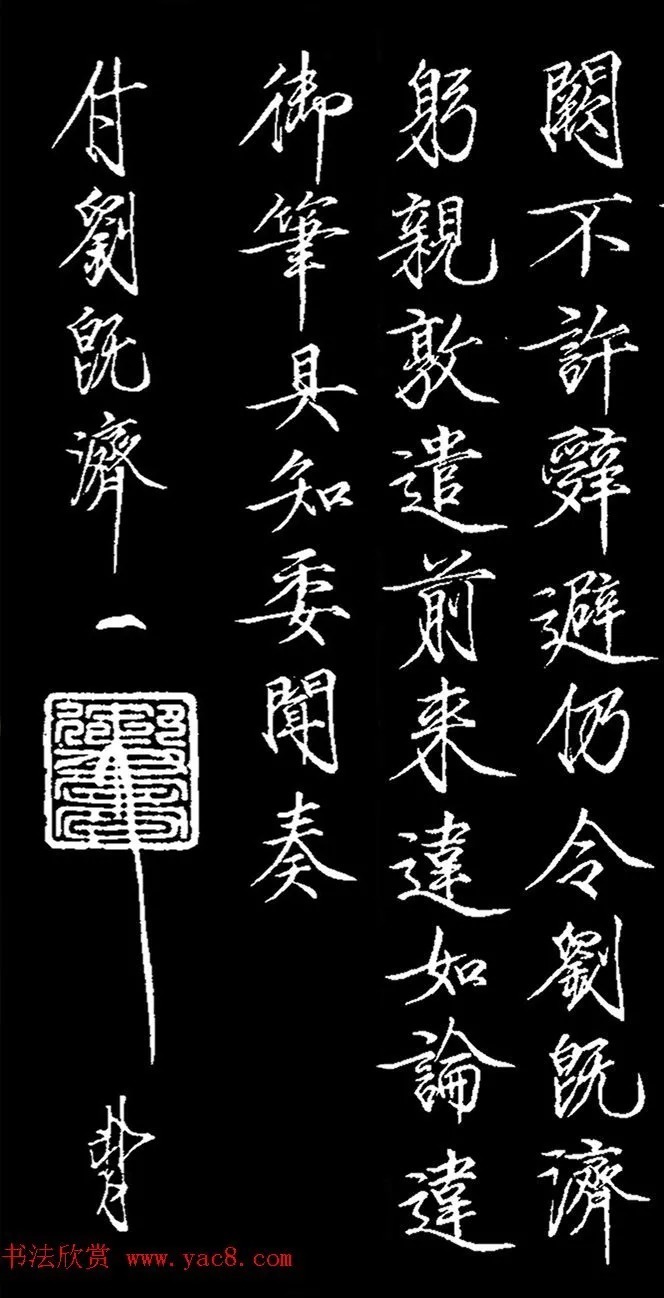 闕不許辭避仍令劉既濟
躬親敦遣前来違如論違
御筆具知委聞奏
付劉既濟
一
書法欣赏 www.yac8.com